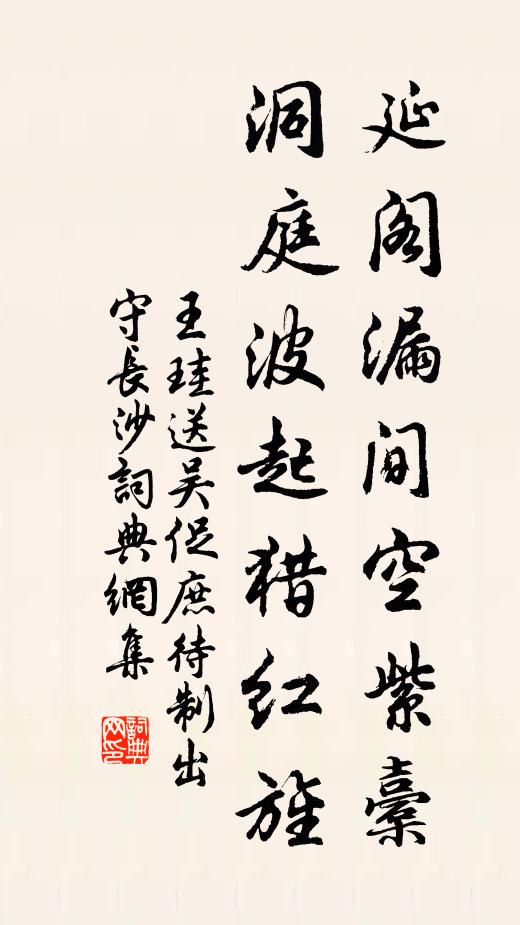 延阁漏间空紫橐
洞庭波起猎红旌
王珪送吴促庶待制出
守長沙詞典網集
詞典网印